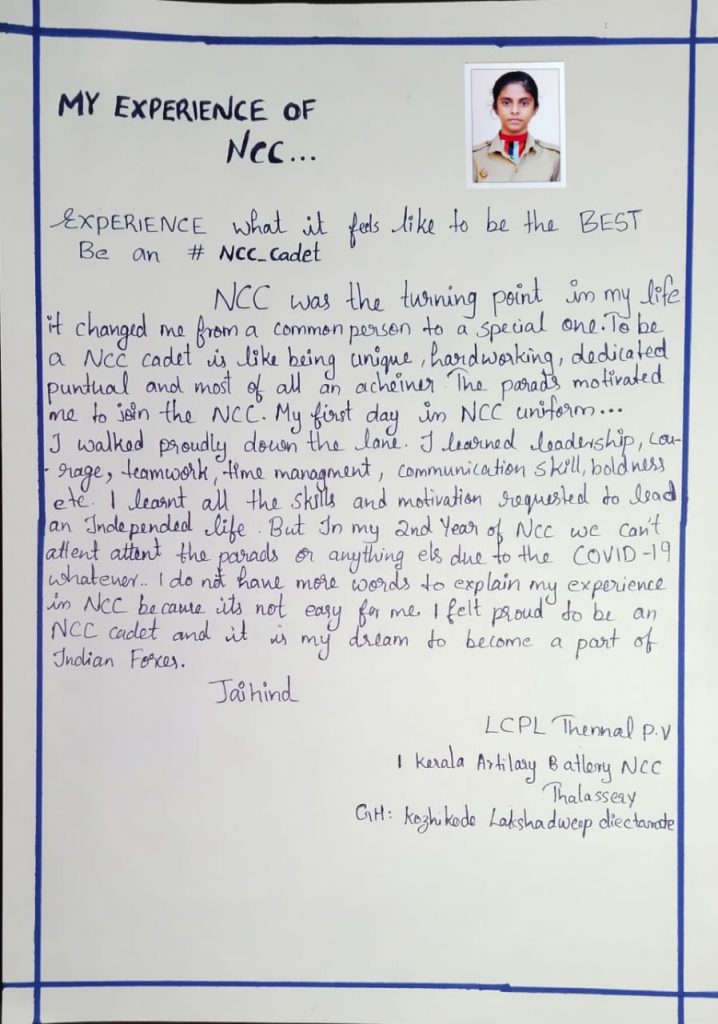 MY EXPERIENCE OF
NCC...
EXPERIENCE what it feels like to be the BEST
Be an # NCC_Cadet
NCC was the turning point in my life
it changed me from a common person to a special one. To be
a NCC cadet is like being unique, hardworking, dedicated
puntual and most of all an acheiner. The parads motivated
me to join the NCC. My first day in NCC uniform...
I walked proudly down the lane. I learned leadership, cou-
-rage, teamwork, time managment, communication skill, boldness
etc. I learnt all the skills and motivation requested to lead
an Independed life. But In my 2nd Year of NCC we can't
attent attent the parads or anything els due to the COVID-19
whatever.. I do not have more words to explain my experience
in NCC because its not easy for me. I felt proud to be an
NCC cadet and it is my dream to become a part of
Indian Forces.
Jaihind
LCPL Thennal P.V
1 Kerala Artilary Battery NCC
Thalassery
GH: Kozhikode Lakshadweep diectarate